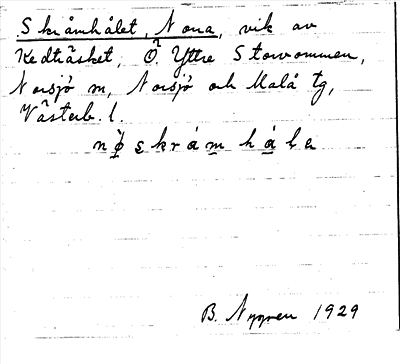 Skråmhålet, Norra, vik av
Kedträsket, Ö. Yttre Storvommen,
Norsjö sn, Norsjö och Malå tg,
Västerb. l.
nø̀skrámhåla
B. Nygren 1929